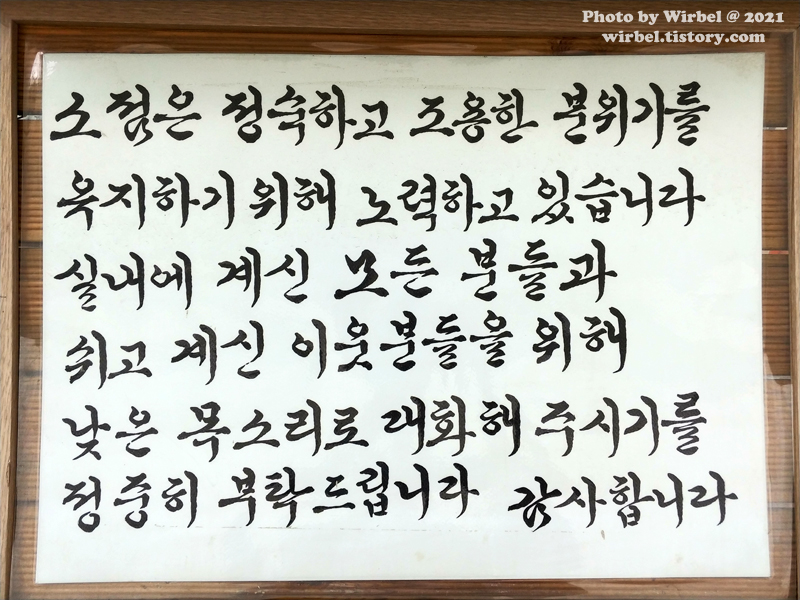 Photo by Wirbel @ 2021
wirbel.tistory.com
소점은 정숙하고 조용한 분위기를
유지하기 위해 노력하고 있습니다
실내에 계신 모든 분들과
쉬고 계신 이웃분들을 위해
낮은 목소리로 대화해 주시기를
정중히 부탁드립니다 감사합니다